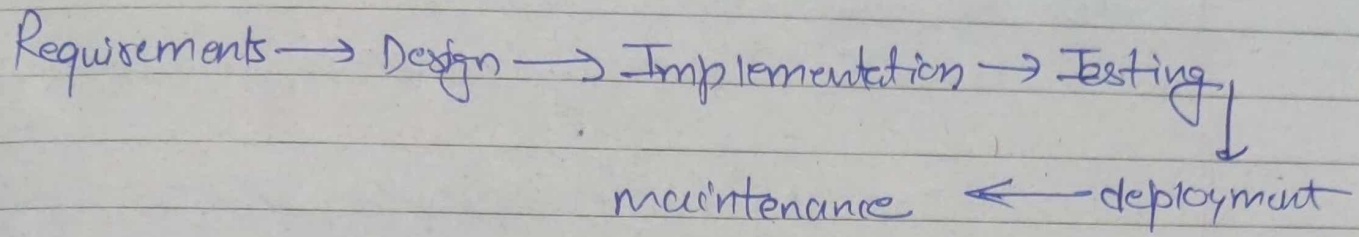 Requirements → Design → Implementation → Testing
maintenance ← deployment